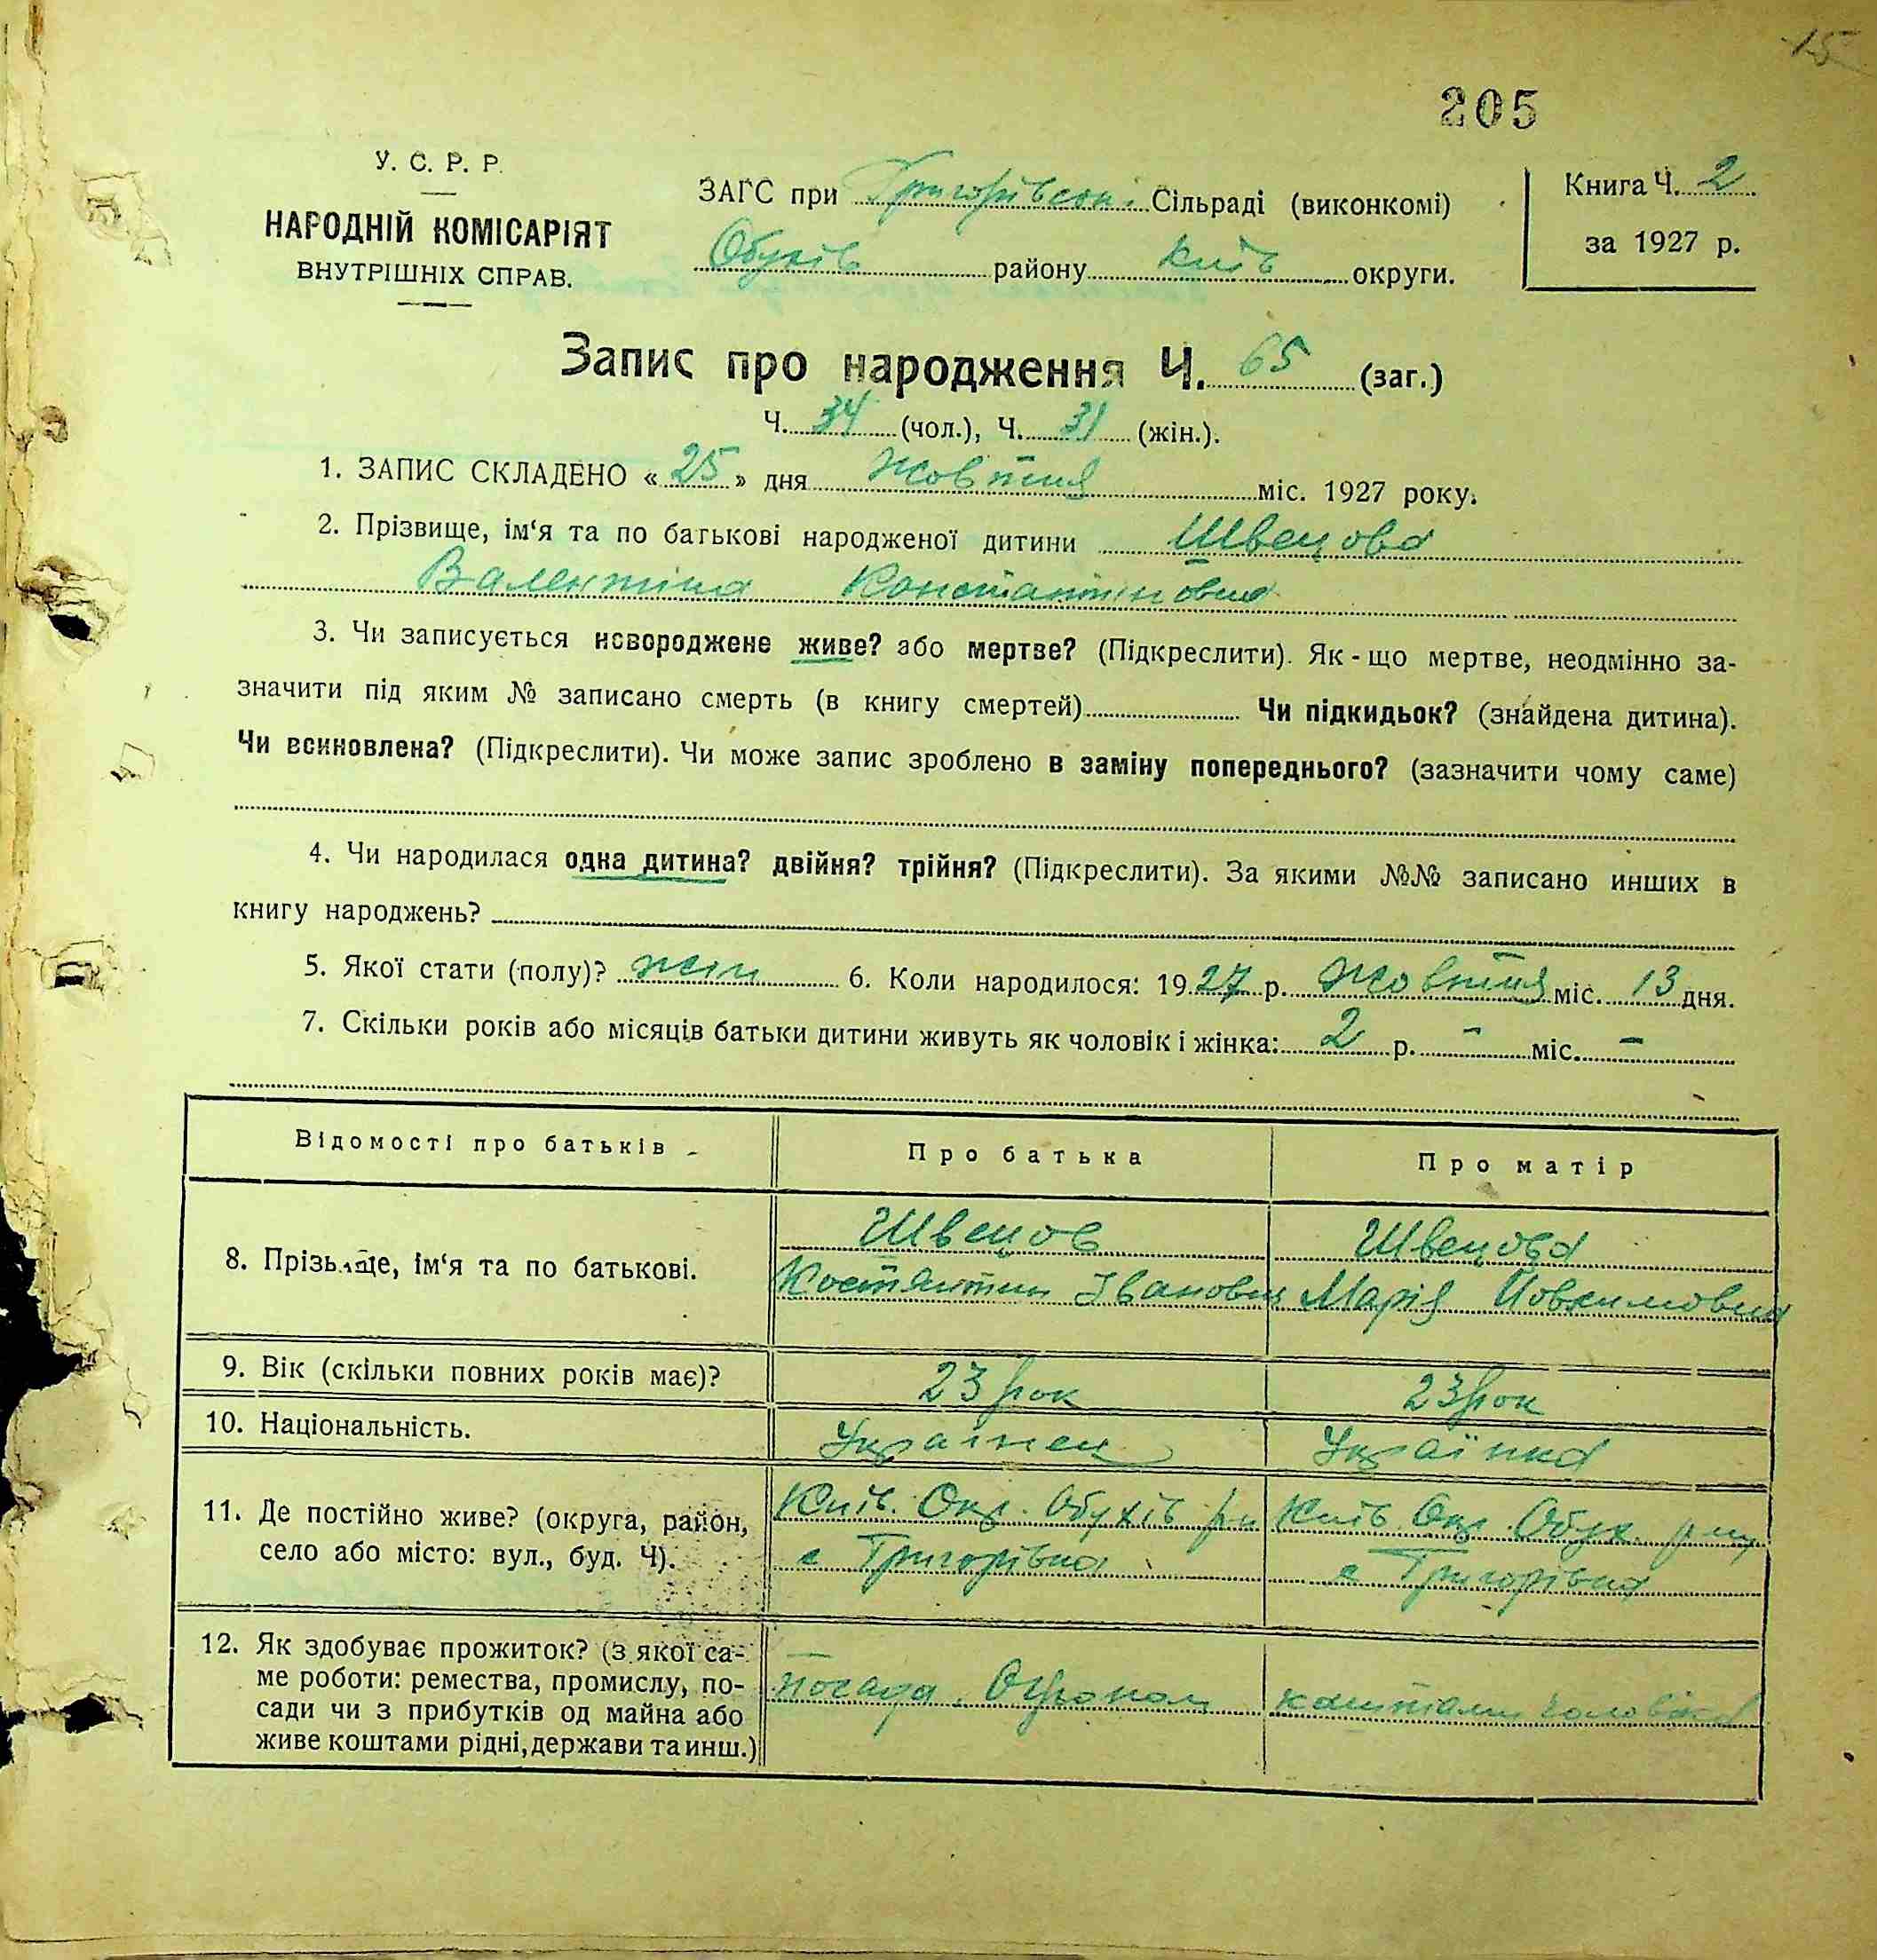 15
205
У. С. Р. Р.
НАРОДНІЙ КОМІСАРІЯТ
ВНУТРІШНІХ СПРАВ.
ЗАГС при Григорівські Сільраді (виконкомі)
Обухів району Київ округи.
Книга Ч. 2
за 1927 р.
Запис про народження Ч. 65 (заг.)
Ч. 34 (чол.), Ч. 31 (жін.).
1. ЗАПИС СКЛАДЕНО « 25 » дня Жовтня міс. 1927 року.
2. Прізвище, ім‘я та по батькові народженої дитини Швецова
Валентина Константіновна
3. Чи записується новороджене живе? або мертве? (Підкреслити). Як - що мертве, неодмінно за-
значити під яким № записано смерть (в книгу смертей) Чи підкидьок? (знайдена дитина).
Чи всиновлена? (Підкреслити). Чи може запис зроблено в заміну попереднього? (зазначити чому саме)
4. Чи народилася одна дитина? двійня? трійня? (Підкреслити). За якими №№ записано инших в
книгу народжень?
5. Якої стати (полу)? жін 6. Коли народилося: 1927 р. Жовтня міс. 13 дня.
7. Скільки років або місяців батьки дитини живуть як чоловік і жінка: 2 р. - міс. -
Відомості про батьків
Про батька
Про матір
8. Прізвище, ім‘я та по батькові.
Швецов
Костянтин Іванович
Швецова
Марія Йовхимовна
9. Вік (скільки повних років має)?
23 рок
23 рок
10. Національність.
Українец
Українка
11. Де постійно живе? (округа, район,
село або місто: вул., буд. Ч).
Київ. Окр. Обухів р-н
с Григорівка
Київ. Окр. Обух. р-ну
с Григорівка
12. Як здобуває прожиток? (з якої са-
ме роботи: ремества, промислу, по-
сади чи з прибутків од майна або
живе коштами рідні, держави та инш.)
посада. Агроном
коштами чоловіка